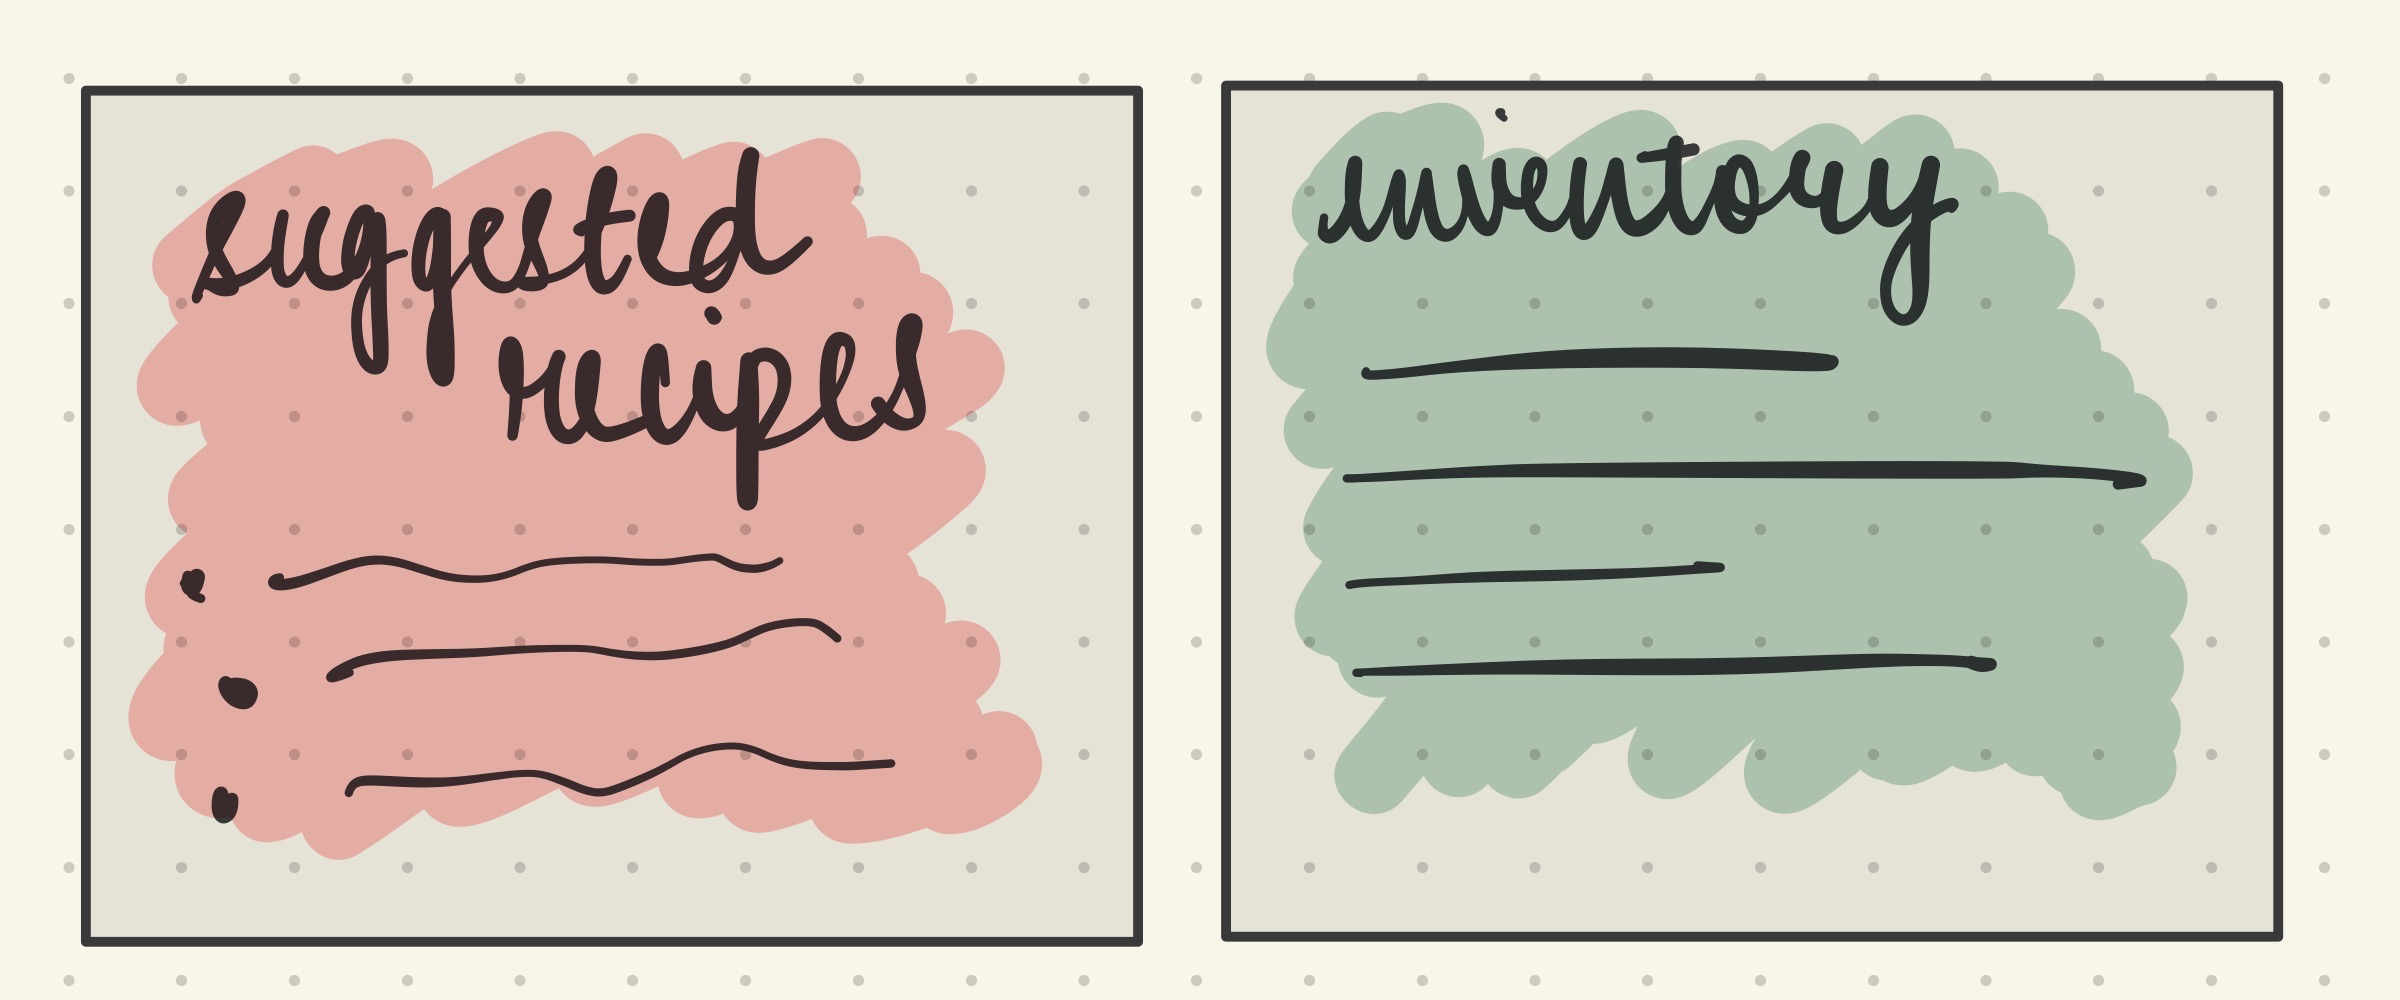 suggested
recipes
inventory